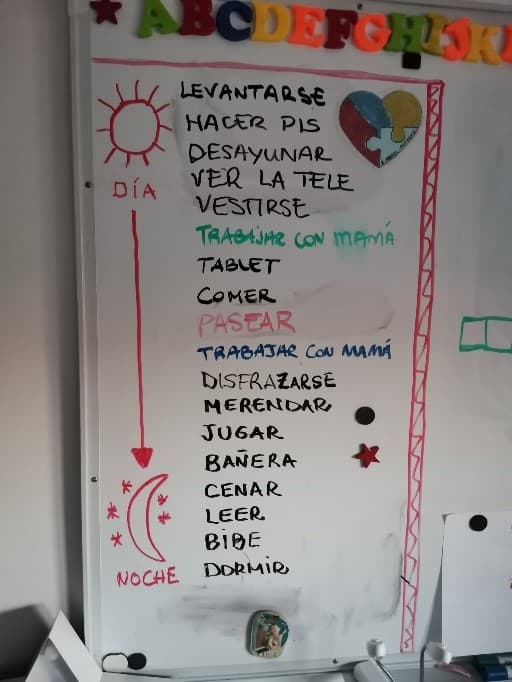 ABCDEFGHIJK
LEVANTARSE
HACER PIS
DESAYUNAR
VER LA TELE
VESTIRSE
TRABAJAR CON MAMÁ
TABLET
COMER
PASEAR
TRABAJAR CON MAMÁ
DISFRAZARSE
MERENDAR
JUGAR
BAÑERA
CENAR
LEER
BIBE
DORMIR
DÍA
NOCHE